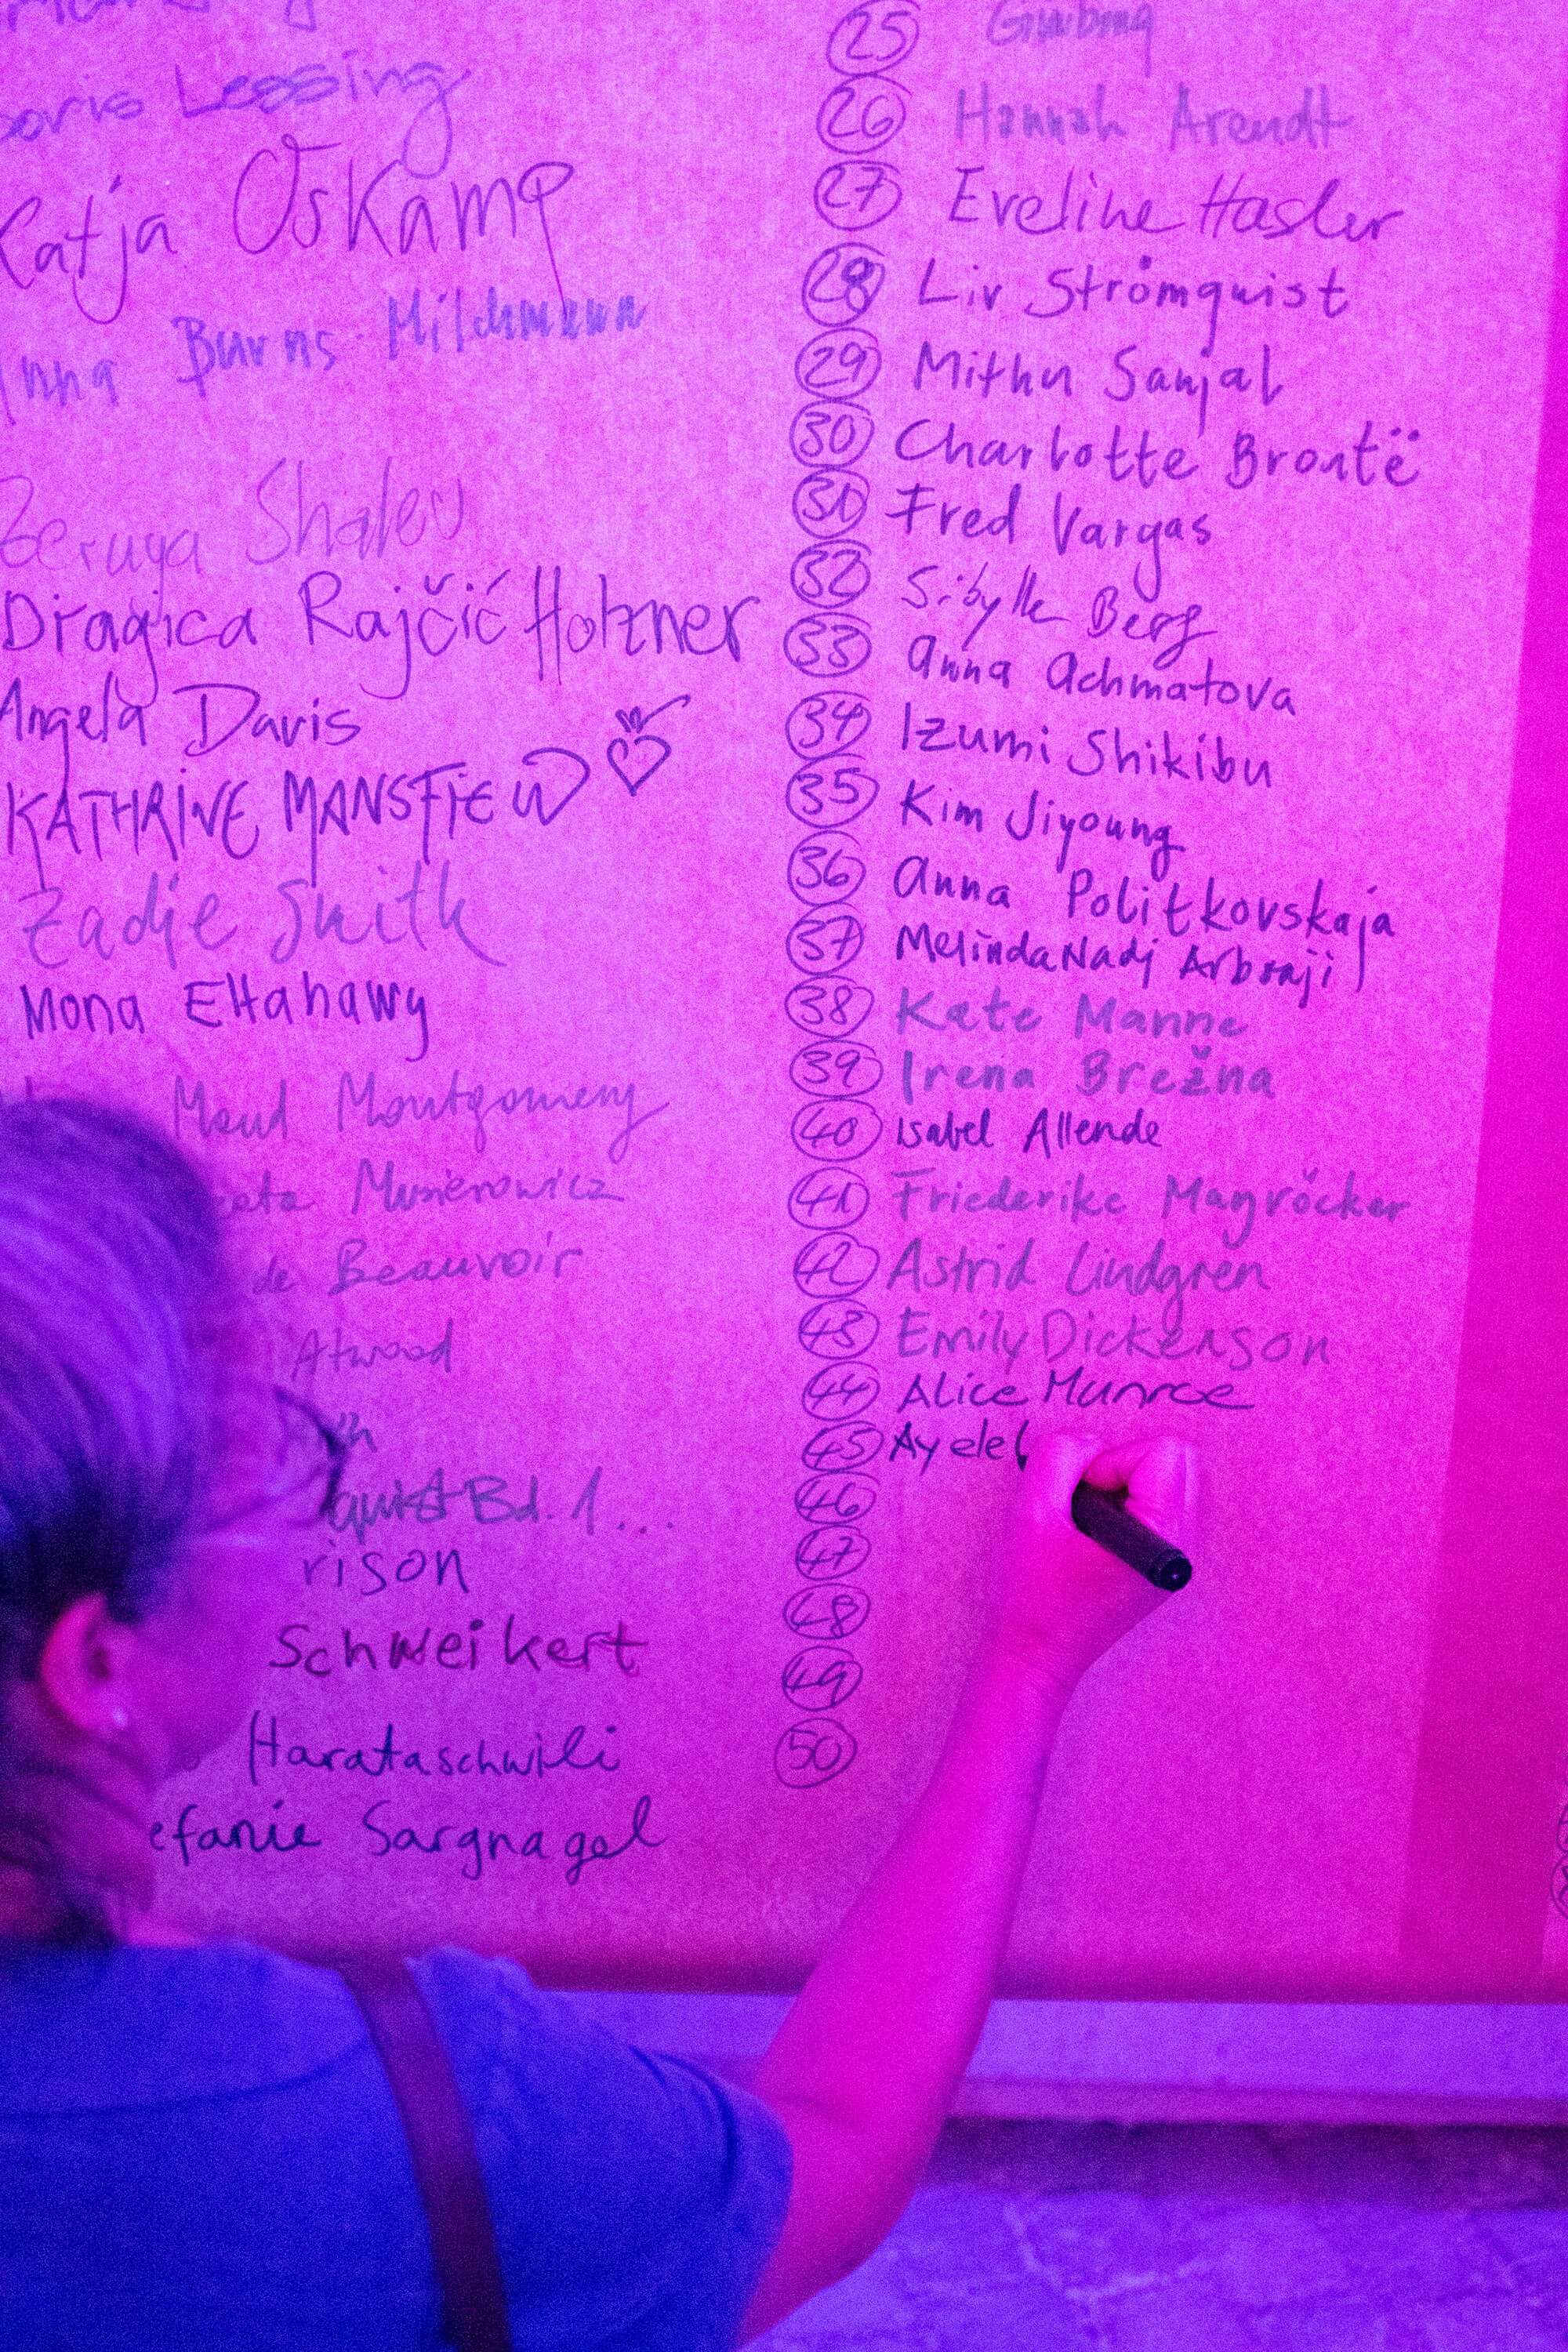 Doris Lessing
Katja Oskamp
Anna Burns Milchmann
Zeruya Shalev
Dragica Rajčić Holzner
Angela Davis
KATHRINE MANSFIELD
Zadie Smith
Mona Eltahawy
Maud Montgomery
de Beauvoir
Atwood
quist Bd. 1...
rison
Schweikert
Harataschwili
efanie Sargnagel
25
26 Hannah Arendt
27 Eveline Hasler
28 Liv Strömquist
29 Mithu Sanjal
30 Charlotte Brontë
31 Fred Vargas
32 Sibylle Berg
33 Anna Achmatova
34 Izumi Shikibu
35 Kim Jiyoung
36 Anna Politkovskaja
37 Melinda Nadj
38 Kate Manne
39 Irena Brežna
40 Isabel Allende
41 Friederike Mayröcker
42 Astrid Lindgren
43 Emily Dickenson
44 Alice Munroe
45 Ayelet
46
47
48
49
50